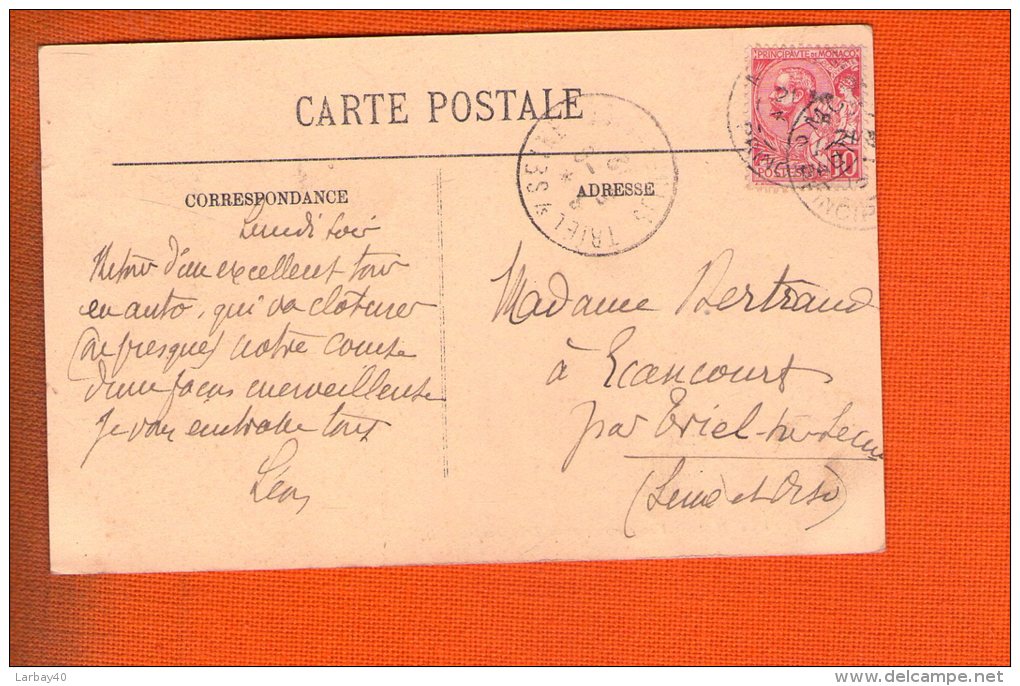 PRINCIPAUTÉ DE MONACO
POSTES 10
CARTE POSTALE
CORRESPONDANCE
ADRESSE
TRIEL
Lundi soir
Retour d'un excellent tour
en auto, qui va clôturer
(ou presque) notre course
d'une façon merveilleuse
Je vous embrasse tous
Léon
Madame Bertrand
à Ecancourt
par Triel-sur-Seine
(Seine et Oise)
Larbay40
delcampe.net